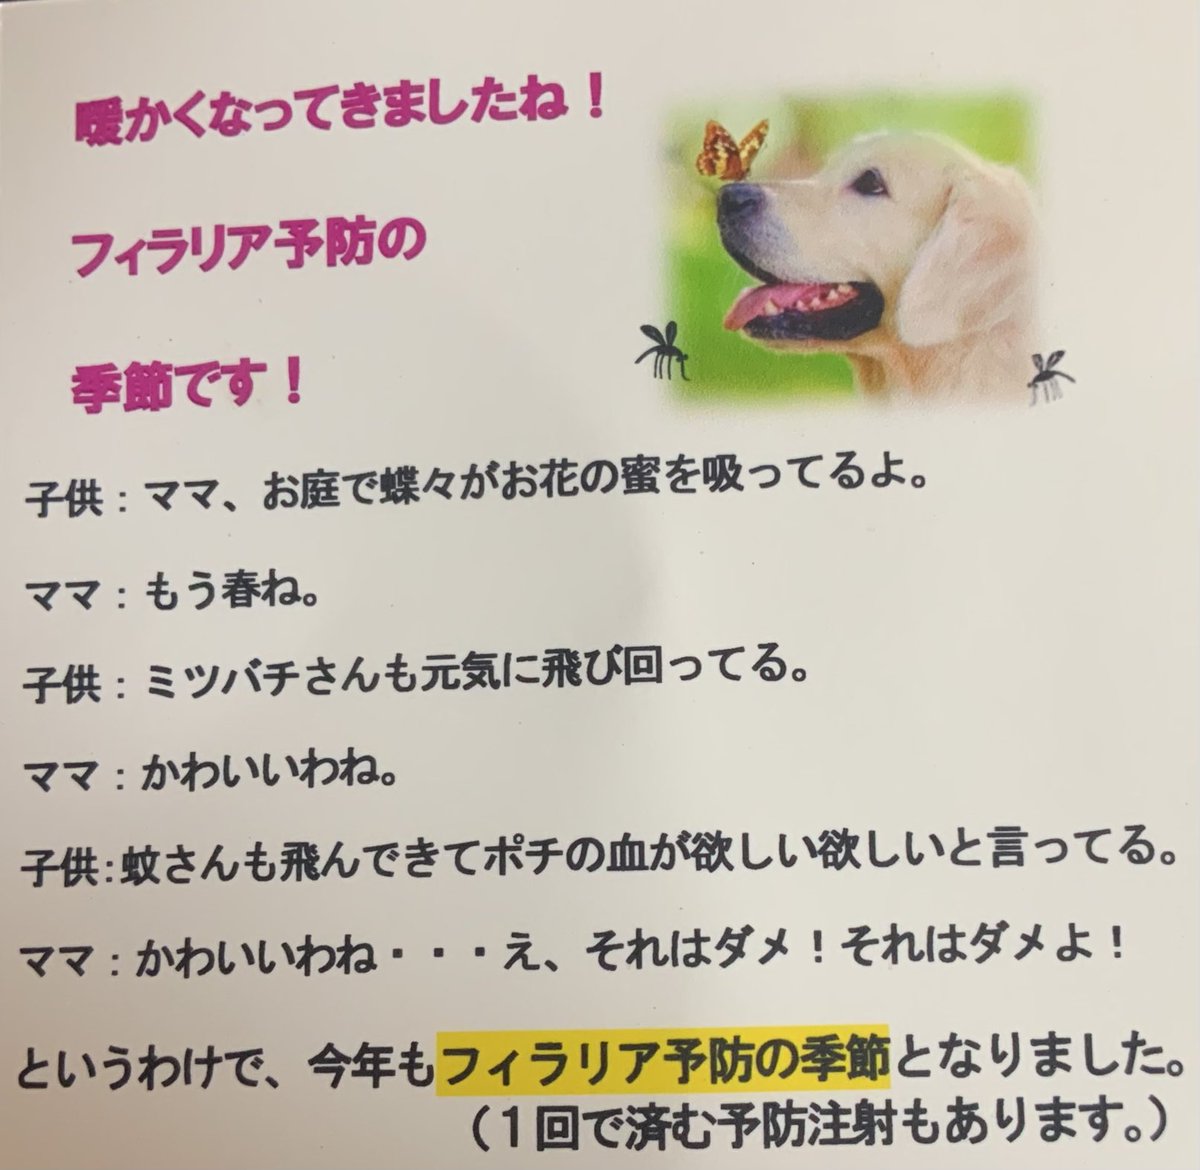 暖かくなってきましたね！
フィラリア予防の
季節です！
子供：ママ、お庭で蝶々がお花の蜜を吸ってるよ。
ママ：もう春ね。
子供：ミツバチさんも元気に飛び回ってる。
ママ：かわいいわね。
子供：蚊さんも飛んできてポチの血が欲しい欲しいと言ってる。
ママ：かわいいわね・・・え、それはダメ！それはダメよ！
というわけで、今年もフィラリア予防の季節となりました。
（１回で済む予防注射もあります。）